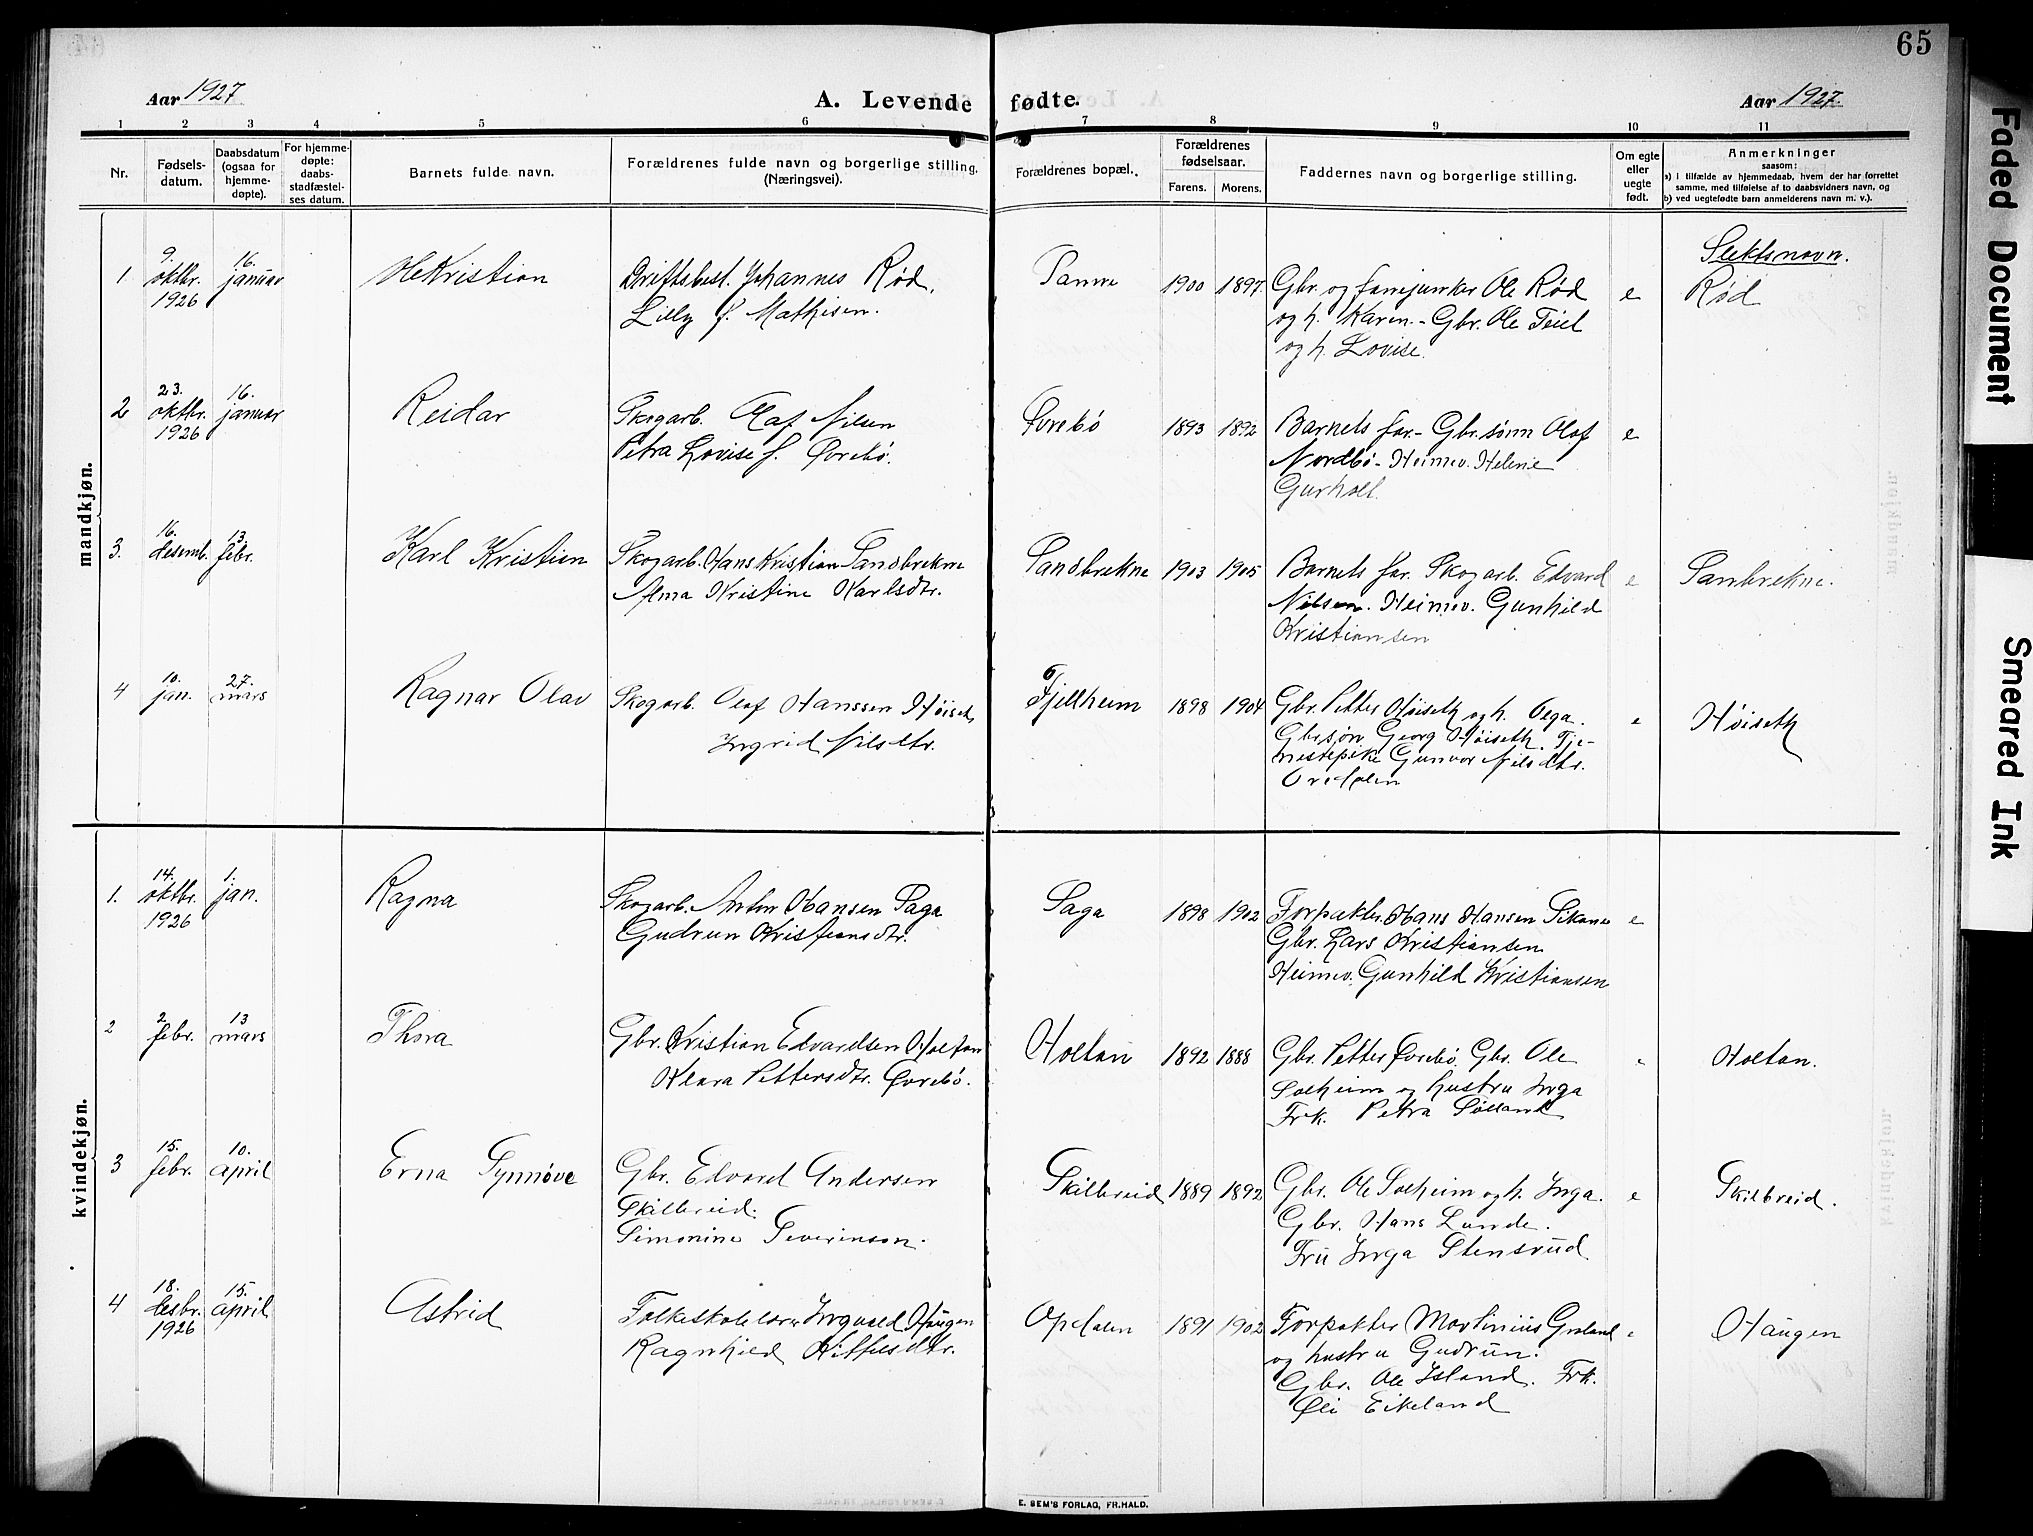 65
Aar 1927
A. Levende fødte.
Aar 1927.
1 2 3 4 5 6 7 8 9 10 11
Nr.
Fødsels-
datum.
Daabsdatum
(ogsaa for
hjemme-
døpte).
For hjemme-
døpte:
daabs-
stadfæstel-
ses datum.
Barnets fulde navn.
Forældrenes fulde navn og borgerlige stilling.
(Næringsvei).
Forældrenes bopæl.
Forældrenes
fødselsaar.
Farens. Morens.
Faddernes navn og borgerlige stilling.
Om egte
eller
uegte
født.
Anmerkninger
saasom:
a) i tilfælde av hjemmedaab, hvem der har forrettet
samme, med tilføielse af to daabsvidners navn, og
b) ved uegtefødte barn anmelderens navn m. v.).
mandkjøn.
Slektsnavn.
1
9.
oktbr.
1926
16.
januar
Ole Kristian
Driftsbest. Johannes Rød.
Lilly f. Mathisen.
1900 1897
Gbr. og fanejunker Ole Rød
og h. Karen. - Gbr. Ole Teiel
og h. Lovise.
e
Rød
2
23.
oktbr.
1926
16.
januar
Reidar
Skogarb. Olaf Nilsen
Petra Lovise f. Øvrebø.
Øvrebø
1893 1892
Barnets far. - Gbr.sønn Olaf
Nordbø - Heimev. Helene
Gurholt.
e
3.
16.
desemb.
13.
febr.
Karl Kristian
Skogarb. Hans Kristian Sandbrekne
Alma Kristine Karlsdtr.
Sandbrekne
1903 1905
Barnets far. Skogarb. Edvard
Nilsen. Heimev. Gunhild
Kristiansen
e
Sanbrekne.
4
10.
jan.
27.
mars
Ragnar Olav
Skogarb. Olaf Hanssen Høiseth
Ingrid Nilsdtr.
Fjellheim
1898 1904
Gbr. Petter Høiseth og h. Olga.
Gbrsjøn Georg Høiseth. Tje-
nestepike Gunvor Nilsdtr.
Ordalen
e
Høiseth
kvindekjøn.
1.
14.
oktbr.
1926
1.
jan.
Ragna
Skogarb. Anton Hansen Saga
Gudrun Kristiansdtr.
Saga
1898 1902
Forpakter Hans Hansen Sikane
Gbr. Lars Kristiansen
Heimev. Gunhild Kristiansen
e
2
2
febr.
13
mars
Thora
Gbr. Kristian Edvardsen Holtan
Klara Pettersdtr. Øvrebø.
Holtan
1892 1888
Gbr. Petter Øvrebø. Gbr. Ole
Solheim og hustru Inga
Frk. Petra Sølland
Holtan.
3
15.
febr.
10.
april
Erna Synnøve
Gbr. Edvard Andersen
Skilbreid.
Simonine Severinson.
Skilbreid
1889 1892
Gbr. Ole Solheim og h. Inga.
Gbr. Hans Lunde.
Fru Inga Stensrud
e
Skilbreid.
4
18.
desbr.
1926
15.
april
Astrid
Folkeskolelærer Ingvald Haugen
Ragnhild Kittelsdtr.
Opdalen
1891 1902
Forpakter Martinius Groland
og hustru Gudrun.
Gbr. Ole Island. Frk.
Øli Eikeland
e
Haugen
E. SEM'S FORLAG, FR.HALD.
Faded Document
Smeared Ink